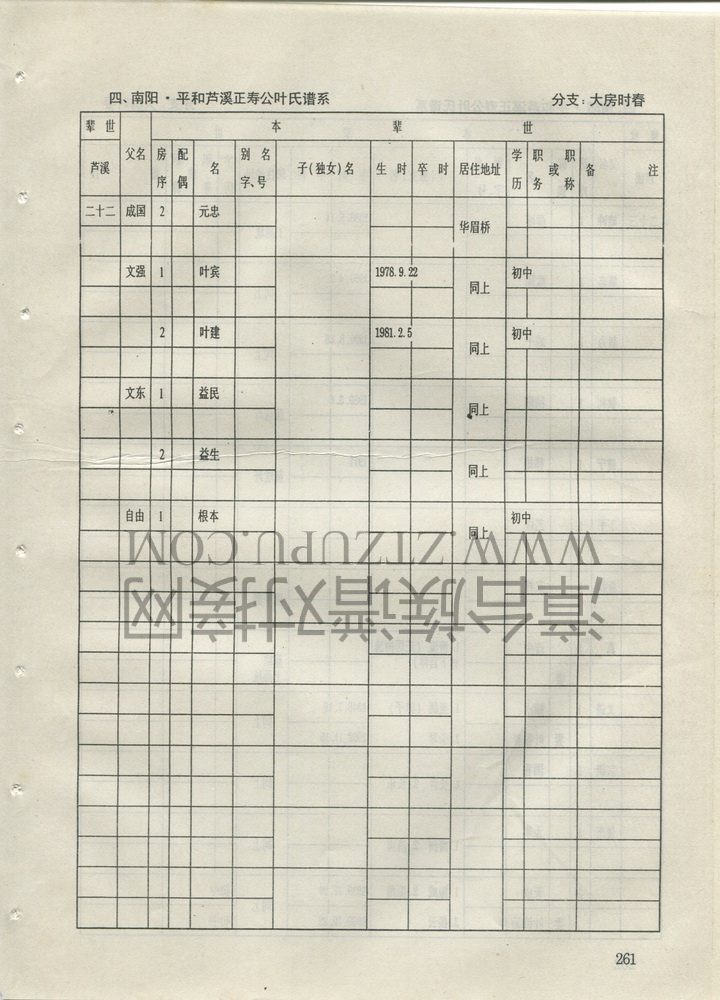 四、南阳·平和芦溪正寿公叶氏谱系 分支：大房时春
辈世 本辈世
芦溪 父名 房序 配偶 名 别名字、号 子(独女)名 生时 卒时 居住地址 学历 职务或职称 备注
二十二 成国 2 元忠 华眉桥
文强 1 叶宾 1978.9.22 同上 初中
2 叶建 1981.2.5 同上 初中
文东 1 益民 同上
2 益生 同上
自由 1 根本 同上 初中
WWW.ZTZUPU.COM
漳台族谱对接网
261